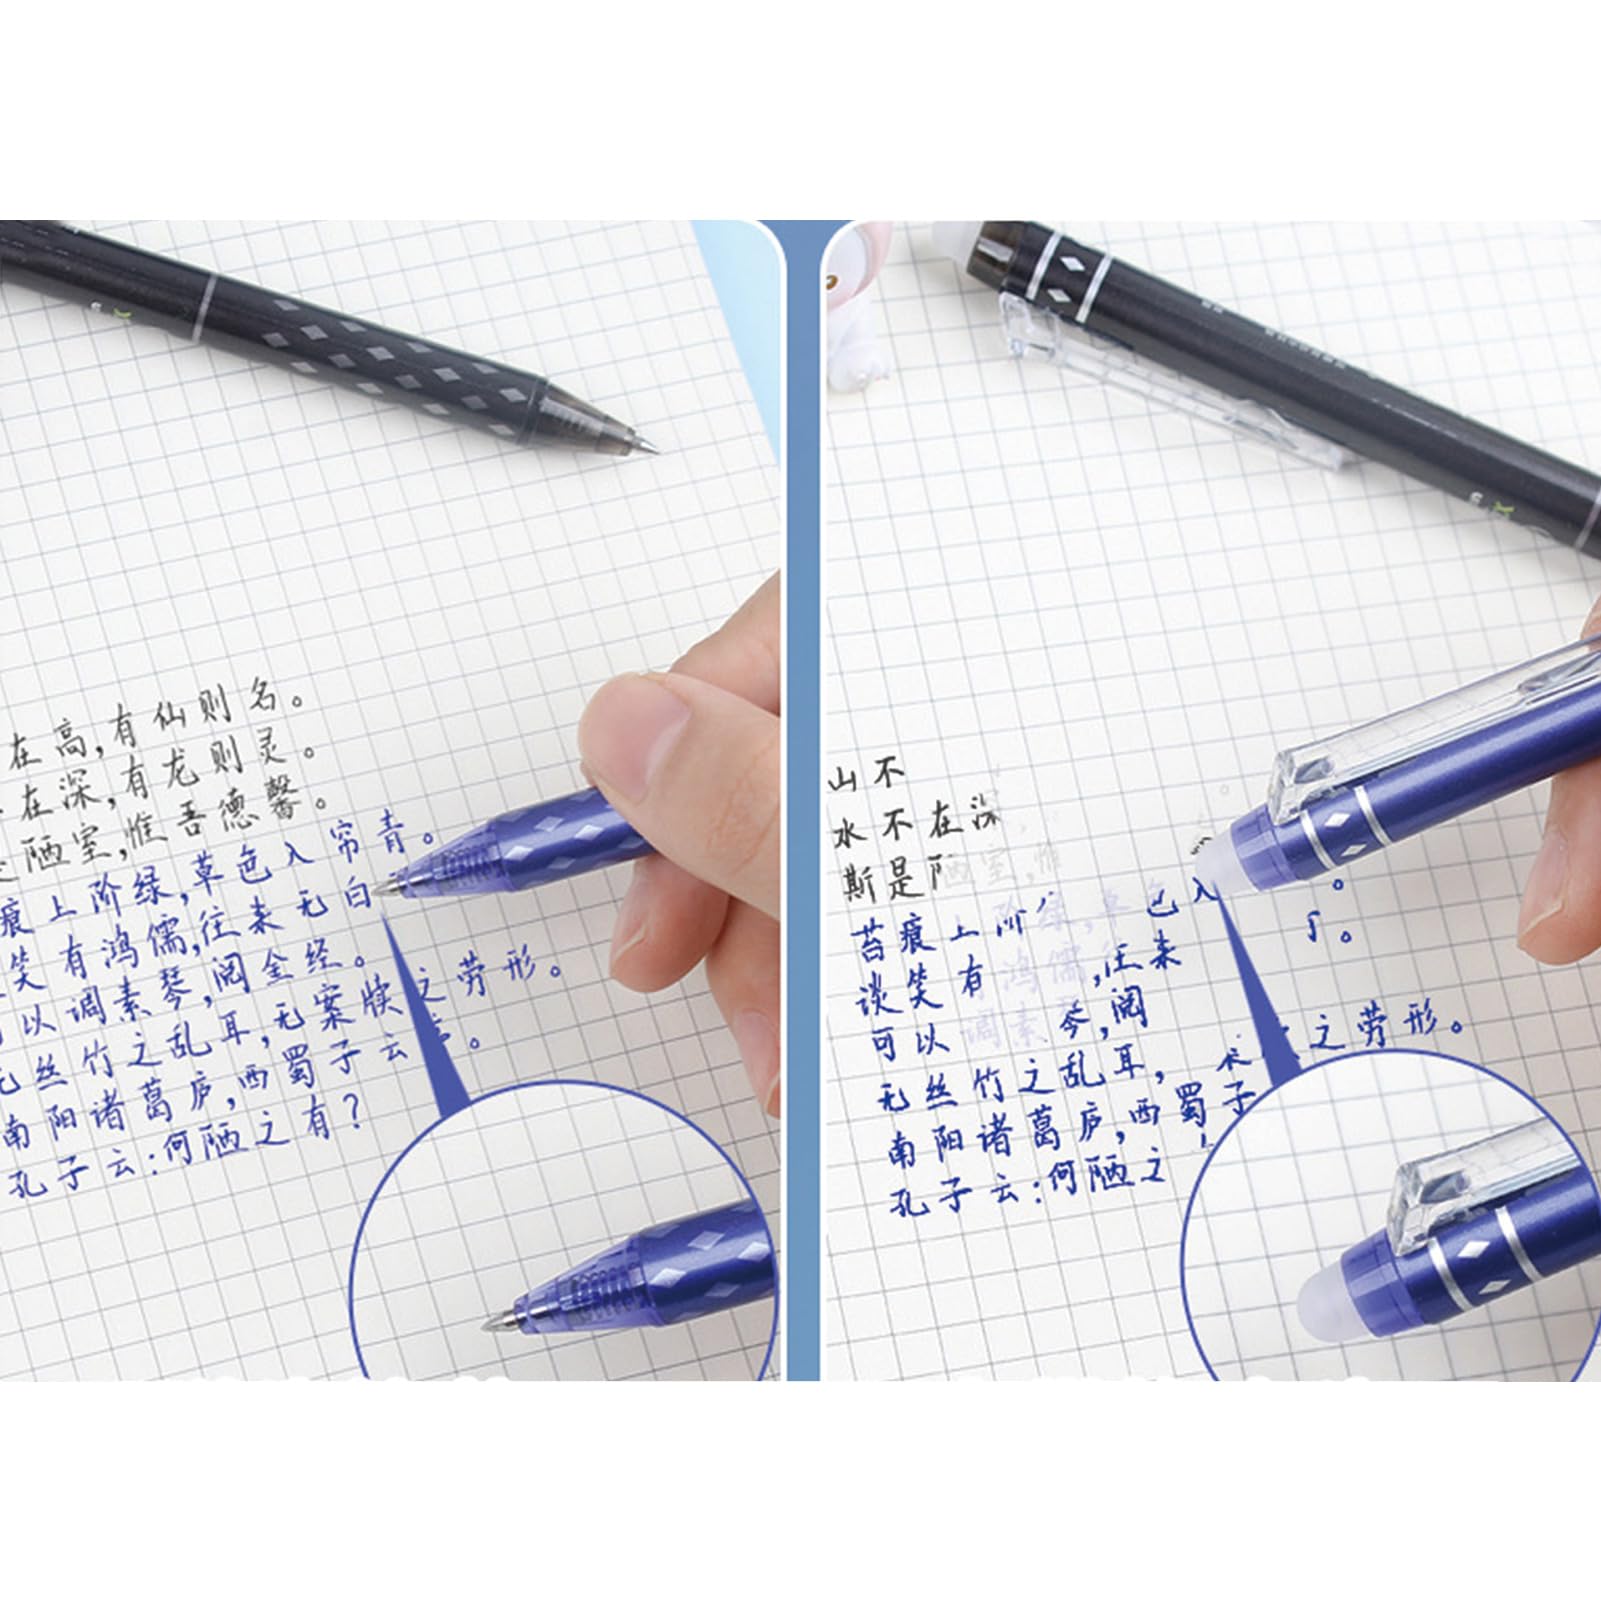 在高,有仙则名。
在深,有龙则灵。
陋室,惟吾德馨。
痕上阶绿,草色入帘青。
笑有鸿儒,往来无白
以调素琴,阅金经。
无丝竹之乱耳,无案牍之劳形。
南阳诸葛庐,西蜀子云亭。
孔子云:何陋之有?
山不
水不在深
斯是陋室,惟
苔痕上阶绿,草色入
谈笑有鸿儒,往来
可以调素琴,阅
无丝竹之乱耳, 之劳形。
南阳诸葛庐,西蜀子
孔子云:何陋之